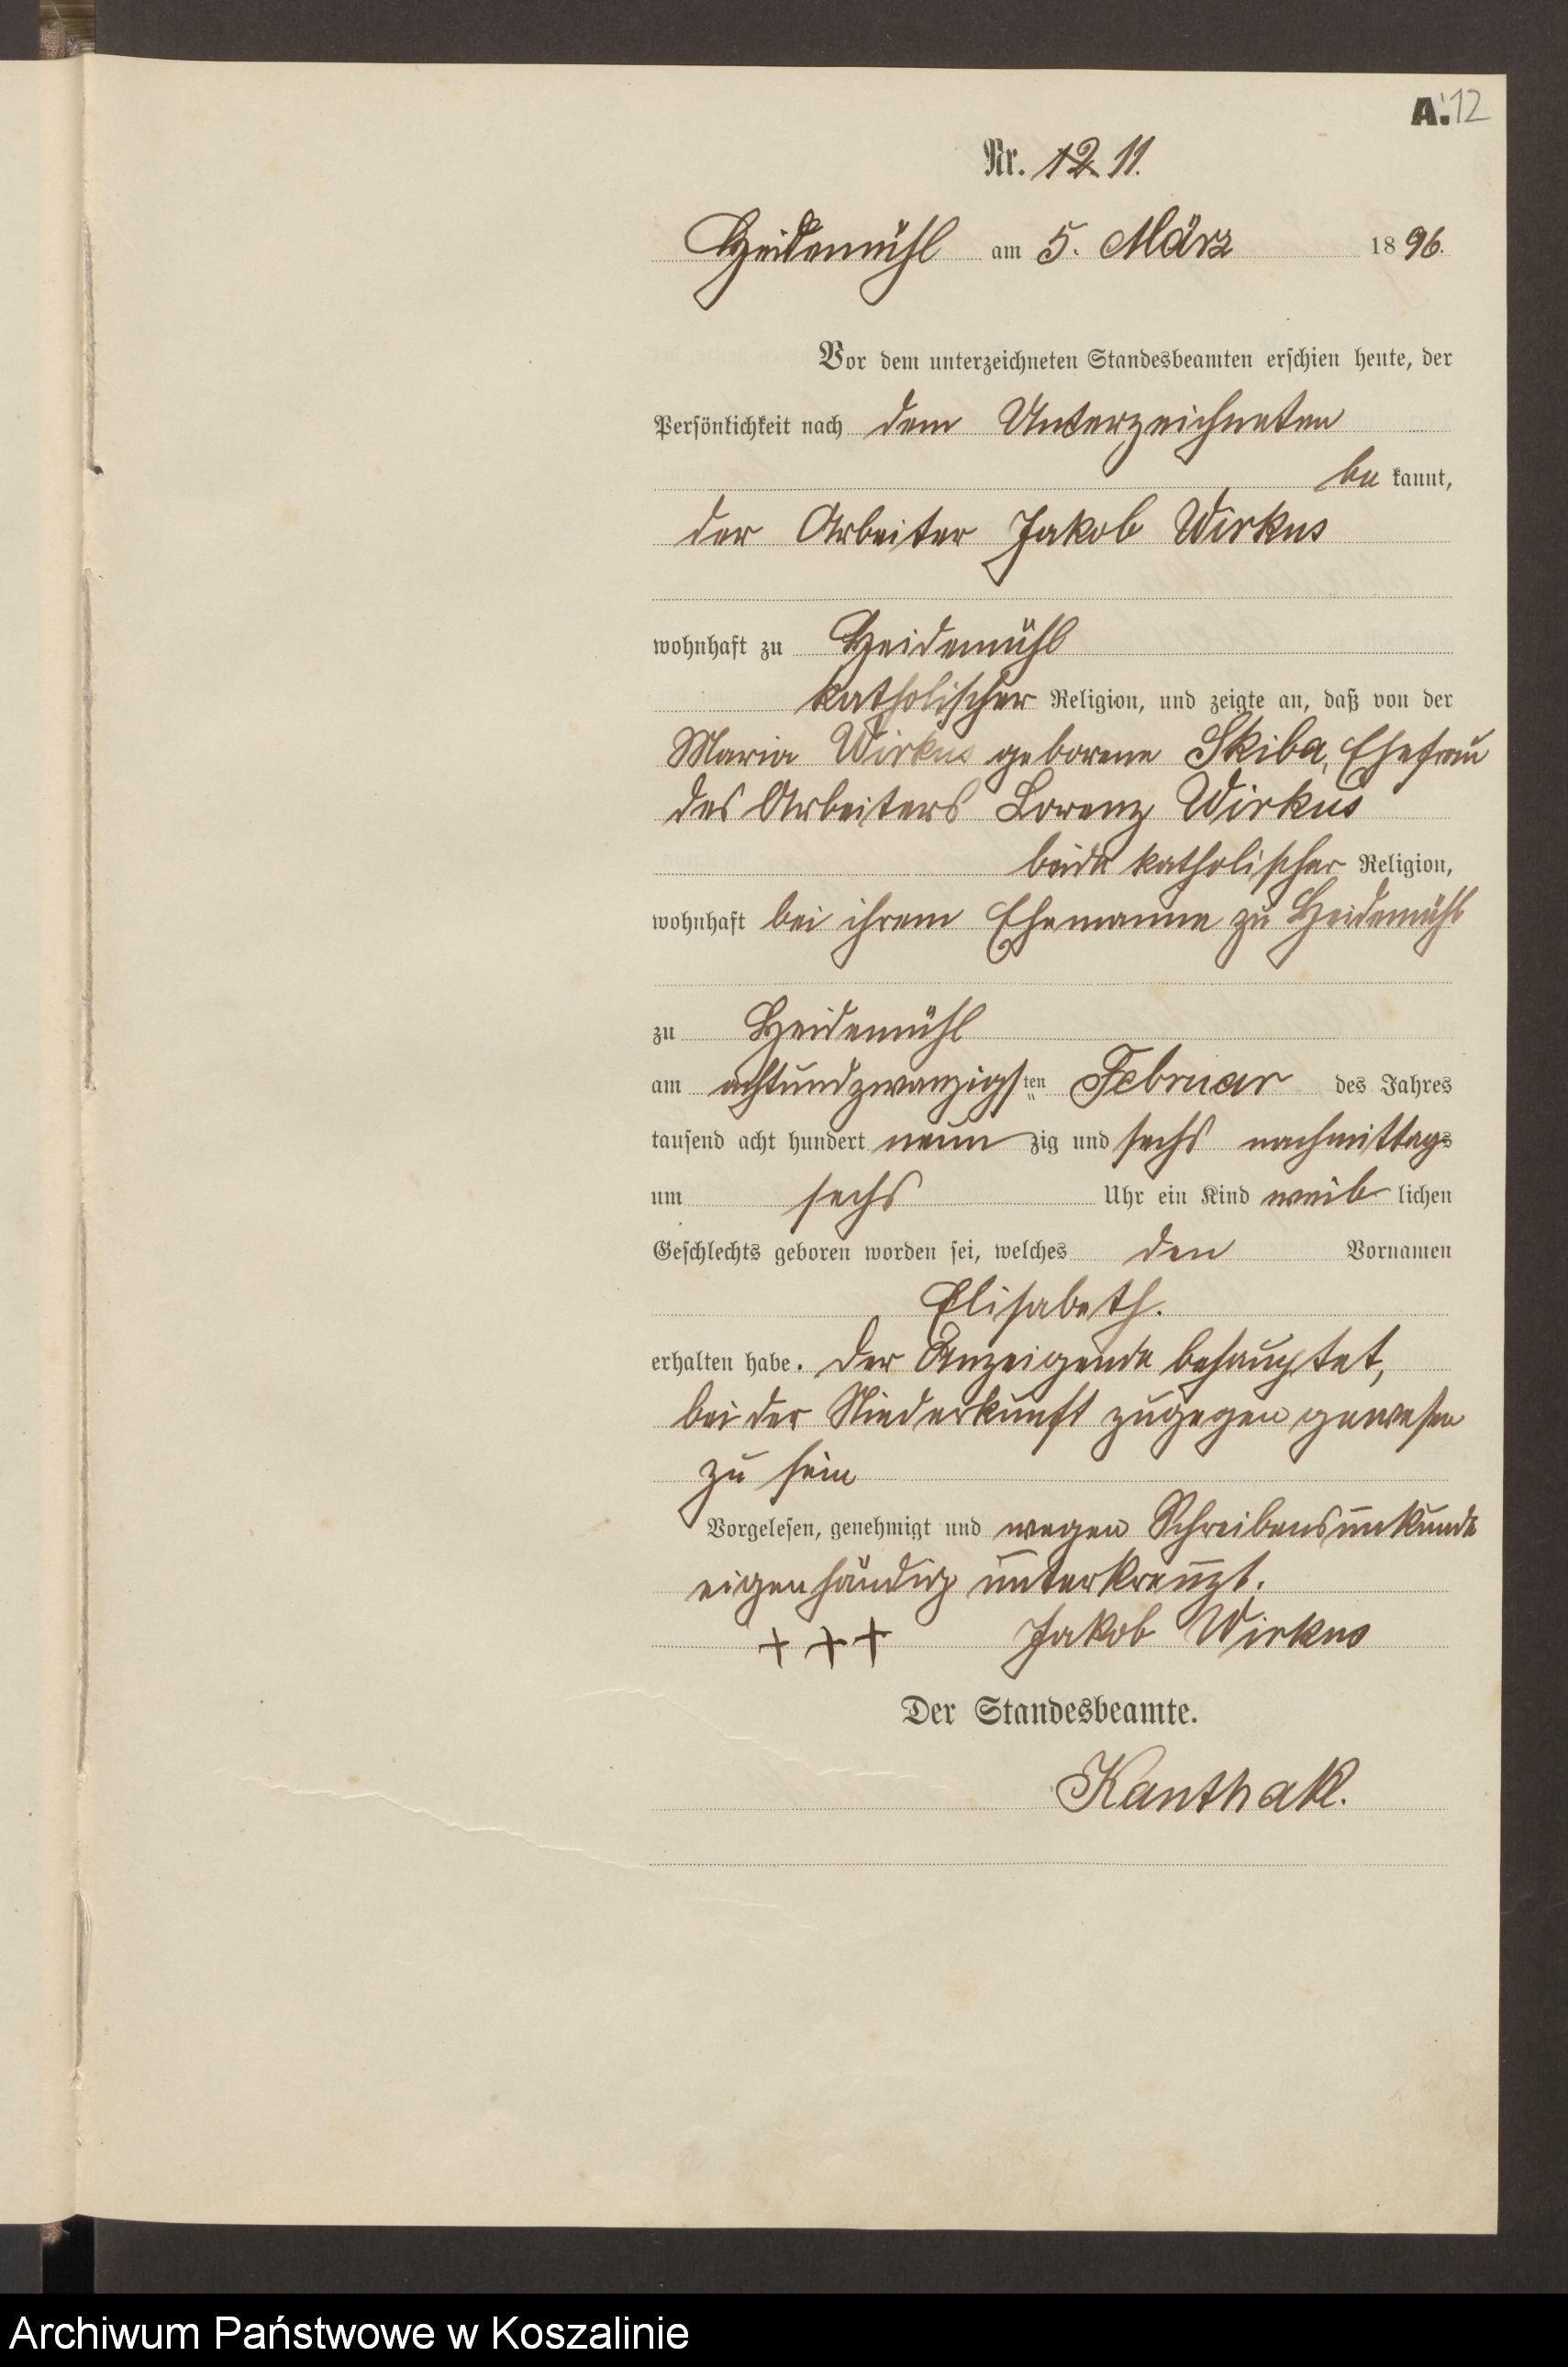 A. 12
Nr. 12 11.
Heidemühl am 5. März 1896.
Vor dem unterzeichneten Standesbeamten erschien heute, der
Persönlichkeit nach dem Unterzeichneten
be kannt,
der Arbeiter Jakob Wirkus
wohnhaft zu Heidemühl
katholischer Religion, und zeigte an, daß von der
Maria Wirkus geborene Skiba, Ehefrau
des Arbeiters Lorenz Wirkus
beide katholischer Religion,
wohnhaft bei ihrem Ehemanne zu Heidemühl
zu Heidemühl
am achtundzwanzigsten Februar des Jahres
tausend acht hundert neunzig und sechs nachmittags
um sechs Uhr ein Kind weiblichen
Geschlechts geboren worden sei, welches den Vornamen
Elisabeth.
erhalten habe. Der Anzeigende behauptet,
bei der Niederkunft zugegen gewesen
zu sein
Vorgelesen, genehmigt und wegen Schreibensunkunde
eigenhändig unterkreuzt.
+ + + Jakob Wirkus
Der Standesbeamte.
Kanthak.
Archiwum Państwowe w Koszalinie